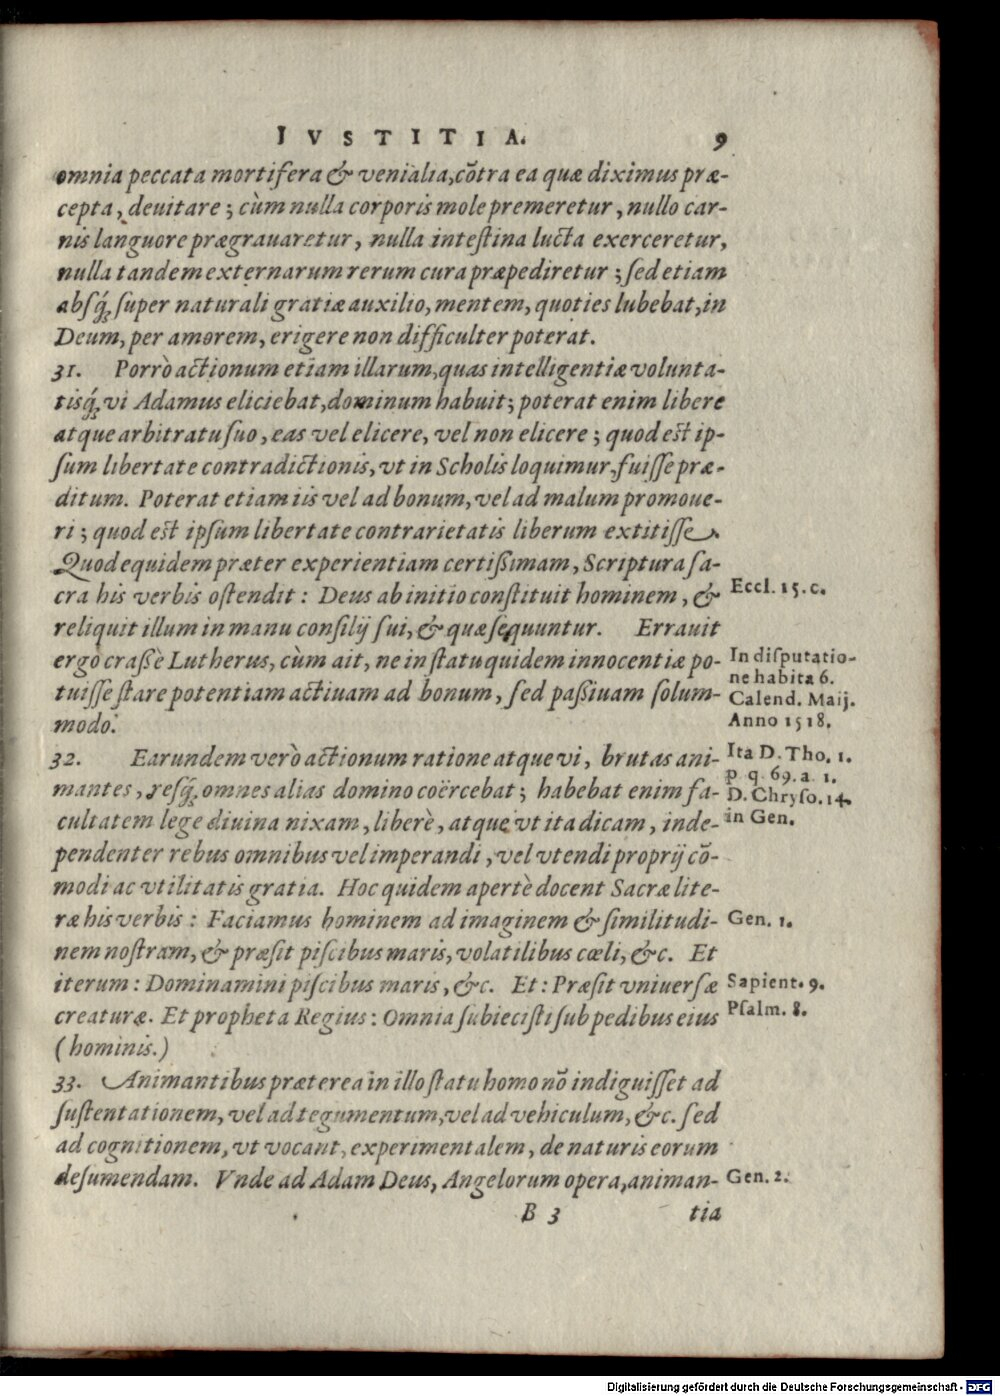 IVSTITIA. 9
omnia peccata mortifera & venialia, cõtra ea quæ diximus præ-
cepta, deuitare; cùm nulla corporis mole premeretur, nullo car-
nis languore prægrauaretur, nulla intestina lucta exerceretur,
nulla tandem externarum rerum cura præpediretur; sed etiam
absq́; super naturali gratiæ auxilio, mentem, quoties lubebat, in
Deum, per amorem, erigere non difficulter poterat.
31. Porrò actionum etiam illarum, quas intelligentiæ volunta-
tisq́; vi Adamus eliciebat, dominum habuit; poterat enim libere
atque arbitratu suo, eas vel elicere, vel non elicere; quod est ip-
sum libertate contradictionis, vt in Scholis loquimur, fuisse præ-
ditum. Poterat etiam iis vel ad bonum, vel ad malum promoue-
ri; quod est ipsum libertate contrarietatis liberum extitisse.
Quod equidem præter experientiam certissimam, Scriptura sa-
cra his verbis ostendit: Deus ab initio constituit hominem, &
Eccl. 15. c.
reliquit illum in manu consilij sui, & quæ sequuntur. Errauit
ergo crassè Lutherus, cùm ait, ne in statu quidem innocentiæ po-
tuisse stare potentiam actiuam ad bonum, sed passiuam solum-
modo.
In disputatio-
ne habita 6.
Calend. Maij.
Anno 1518.
32. Earundem verò actionum ratione atque vi, brutas ani-
mantes, resq́; omnes alias domino coërcebat; habebat enim fa-
cultatem lege diuina nixam, liberè, atque vt ita dicam, inde-
pendenter rebus omnibus vel imperandi, vel vtendi proprij cõ-
Ita D. Tho. 1.
p. q. 69. a. 1.
D. Chryso. 14.
in Gen.
modi ac vtilitatis gratia. Hoc quidem apertè docent Sacræ lite-
ræ his verbis: Faciamus hominem ad imaginem & similitudi-
Gen. 1.
nem nostram, & præsit piscibus maris, volatilibus cœli, &c. Et
iterum: Dominamini piscibus maris, &c. Et: Præsit vniuersæ
Sapient. 9.
creaturæ. Et propheta Regius: Omnia subiecisti sub pedibus eius
Psalm. 8.
(hominis.)
33. Animantibus præterea in illo statu homo nõ indiguisset ad
sustentationem, vel ad tegumentum, vel ad vehiculum, &c. sed
ad cognitionem, vt vocant, experimentalem, de naturis eorum
desumendam. Vnde ad Adam Deus, Angelorum opera, animan-
Gen. 2.
B 3 tia
Digitalisierung gefördert durch die Deutsche Forschungsgemeinschaft - DFG